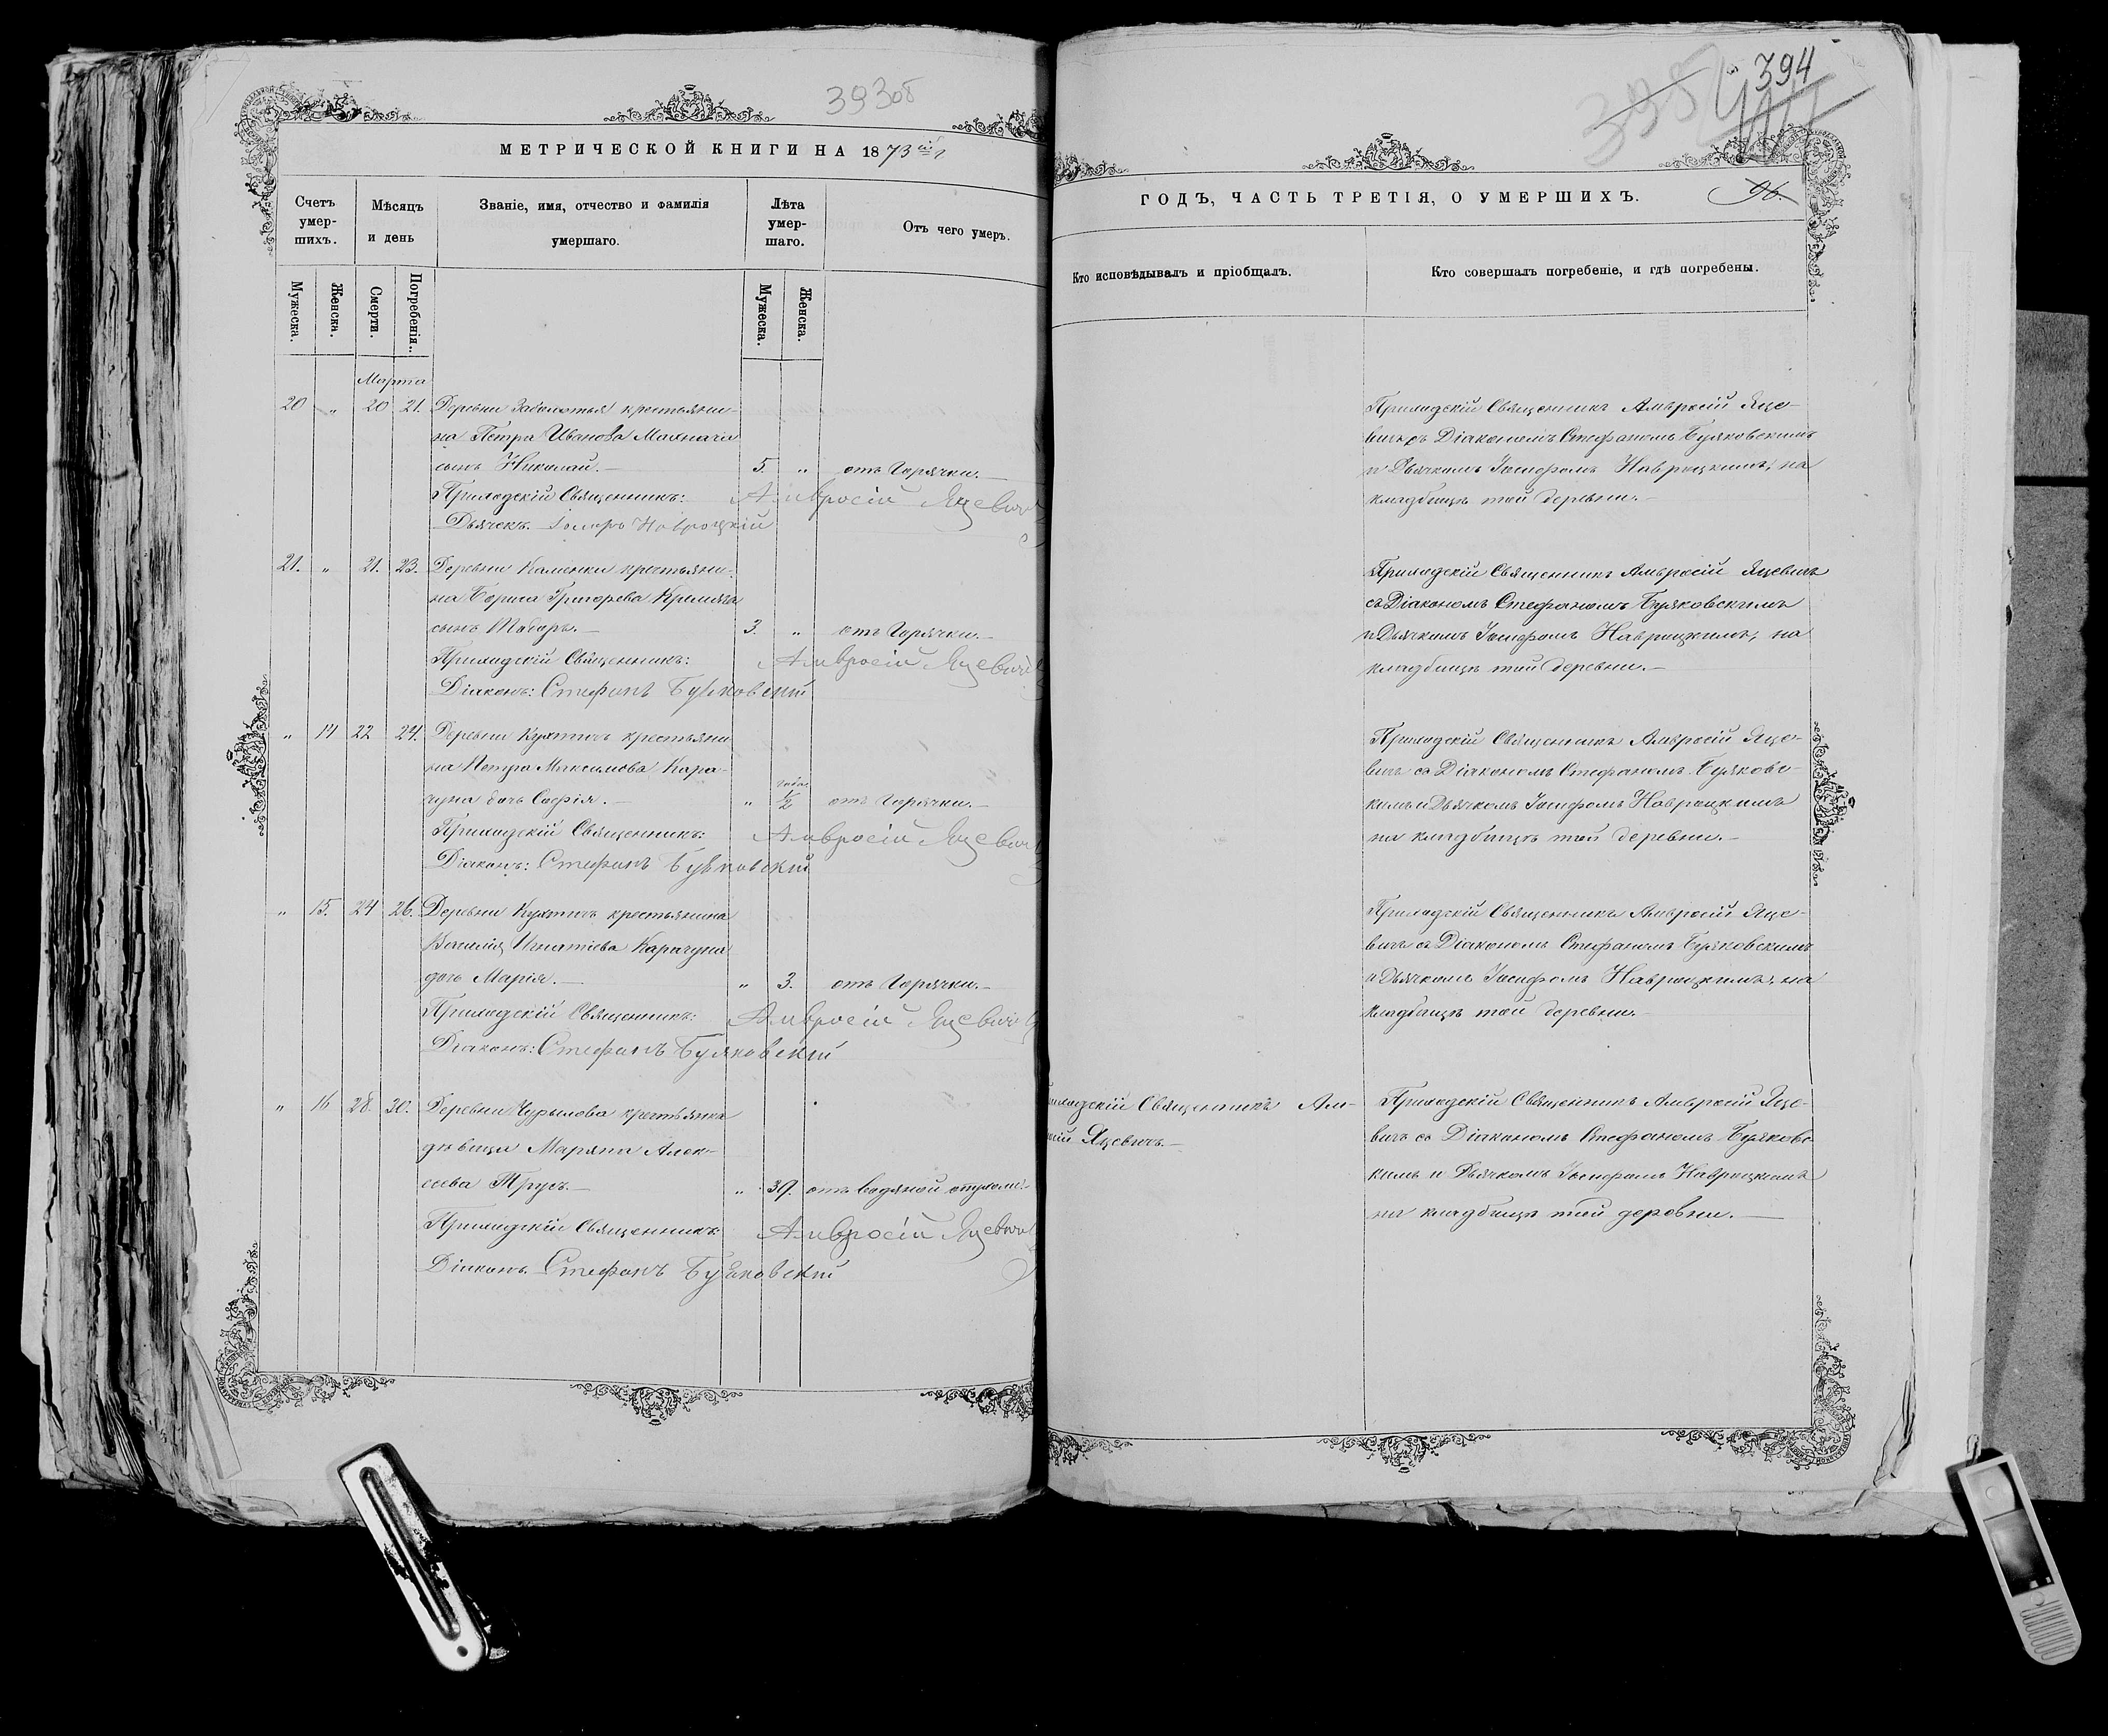 393об
МЕТРИЧЕСКОЙ КНИГИ НА 1873
Счетъ умер-шихъ.
Мѣсяцъ и день
Званіе, имя, отчество и фамилія умершаго.
Лѣта умер-шаго.
Отъ чего умеръ.
Мужеска.
Женска.
Смерти.
Погребенія.
Мужеска.
Женска.
Марта
20 „ 20 21. Деревни Заболотья крестьяни-
на Петра Иванова Махнача
сынъ Николай.— 5. „ отъ Горячки.—
Приходскій Священникъ: Амвросій Яцевичъ
Дьячекъ Іосифъ Навроцкій
21. „ 21. 23. Деревни Каменки крестьяни-
на Бориса Григорьева
сынъ 3. „ отъ Горячки.—
Приходскій Священникъ: Амвросій Яцевичъ
Діаконъ: Стефанъ Буяковскій
„ 14 22 24. Деревни Кухтичъ крестьяни
на Петра Максимова Кара-
чуна дочь Софія.— „ года 1/2 отъ Горячки.—
Приходскій Священникъ: Амвросій Яцевичъ
Діаконъ: Стефанъ Буяковскій
„ 15. 24 26. Деревни Кухтичъ крестьянина
Василія Игнатіева Карачуна
дочь Марія.— „ 3. отъ Горячки.—
Приходскій Священникъ: Амвросій Яцевичъ
Діаконъ: Стефанъ Буяковскій
„ 16 28. 30. Деревни Чурилова крестьянка
дѣвица Маряна Алек-
сѣева Трусъ.— „ 39. отъ водяной
Приходскій Священникъ: Амвросій Яцевичъ
Діаконъ. Стефанъ Буяковскій
394
395
96.
ГОДЪ, ЧАСТЬ ТРЕТІЯ, О УМЕРШИХЪ.
Кто исповѣдывалъ и пріобщалъ.
Кто совершалъ погребеніе, и гдѣ погребены.
Приходскій Священникъ Амвросій Яце-
вичъ съ Діакономъ Стефаномъ Буяковскимъ
и Дьячкомъ Іосифомъ Навроцкимъ, на
кладбищѣ той деревни.—
Приходскій Священникъ Амвросій Яцевичъ
съ Діакономъ Стефаномъ Буяковскимъ
и Дьячкомъ Іосифомъ Навроцкимъ, на
кладбищѣ той деревни.—
Приходскій Священникъ Амвросій Яце-
вичъ съ Діакономъ Стефаномъ Буяковс-
кимъ и Дьячкомъ Іосифомъ Навроцкимъ
на кладбищѣ той деревни.—
Приходскій Священникъ Амвросій Яце-
вичъ съ Діакономъ Стефаномъ Буяковскимъ
и Дьячкомъ Іосифомъ Навроцкимъ, на
кладбищѣ той деревни.—
иходскій Священникъ Ам-
сій Яцевичъ.—
Приходскій Священникъ Амвросій Яце-
вичъ съ Діакономъ Стефаномъ Буяковс-
кимъ и Дьячкомъ Іосифомъ Навроцкимъ
на кладбищѣ той деревни.—